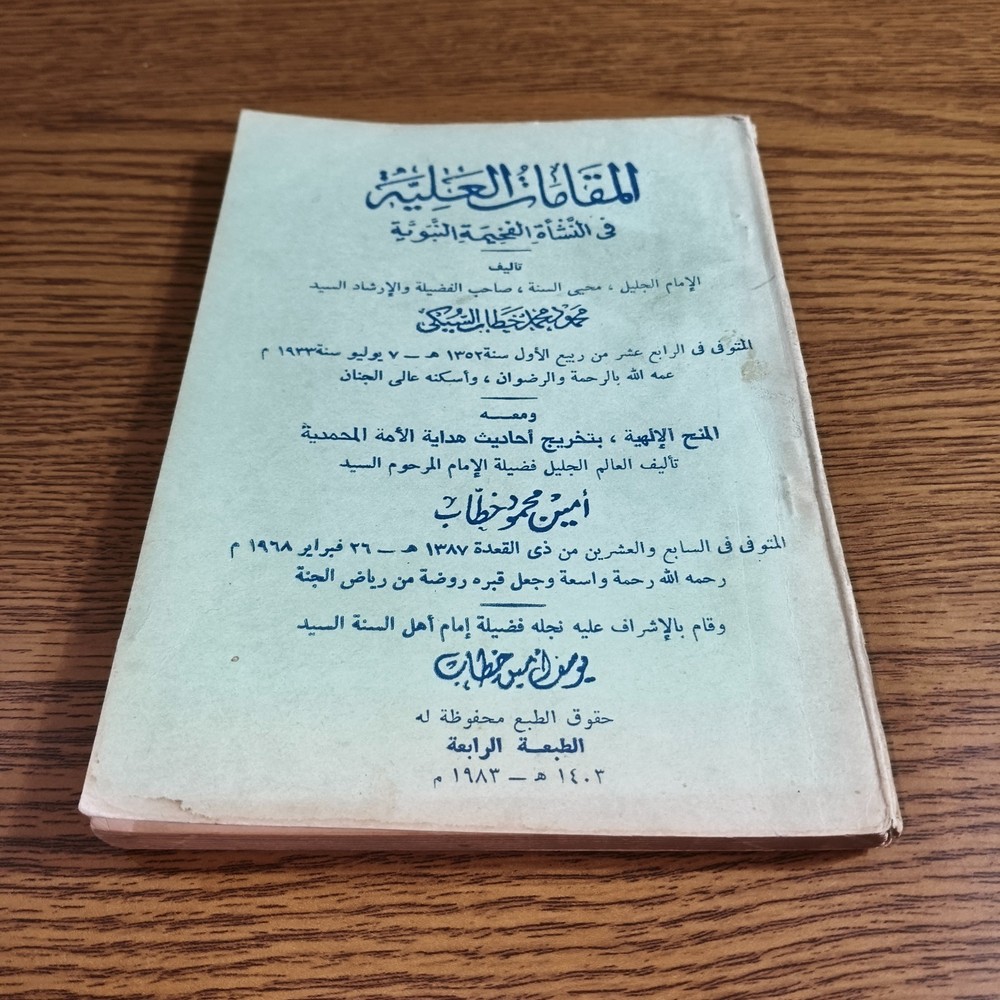 المقامات العلية
فى النشأة الفخيمة النبوية
تأليف
الإمام الجليل ، محيى السنة ، صاحب الفضيلة والإرشاد السيد
محمود محمد خطاب السبكى
المتوفى فى الرابع عشر من ربيع الأول سنة ١٣٥٢ هـ — ٧ يوليو سنة ١٩٣٣ م
عمه الله بالرحمة والرضوان ، وأسكنه عالى الجنان
ومعـــه
المنح الإلهية ، بتخريج أحاديث هداية الأمة المحمدية
تأليف العالم الجليل فضيلة الإمام المرحوم السيد
أمين محمود خطاب
المتوفى فى السابع والعشرين من ذى القعدة ١٣٨٧ هـ — ٢٦ فبراير ١٩٦٨ م
رحمه الله رحمة واسعة وجعل قبره روضة من رياض الجنة
وقام بالإشراف عليه نجله فضيلة إمام أهل السنة السيد
يوسف أمين خطاب
حقوق الطبع محفوظة له
الطبعـــة الرابعة
١٤٠٣ هـ — ١٩٨٣ م